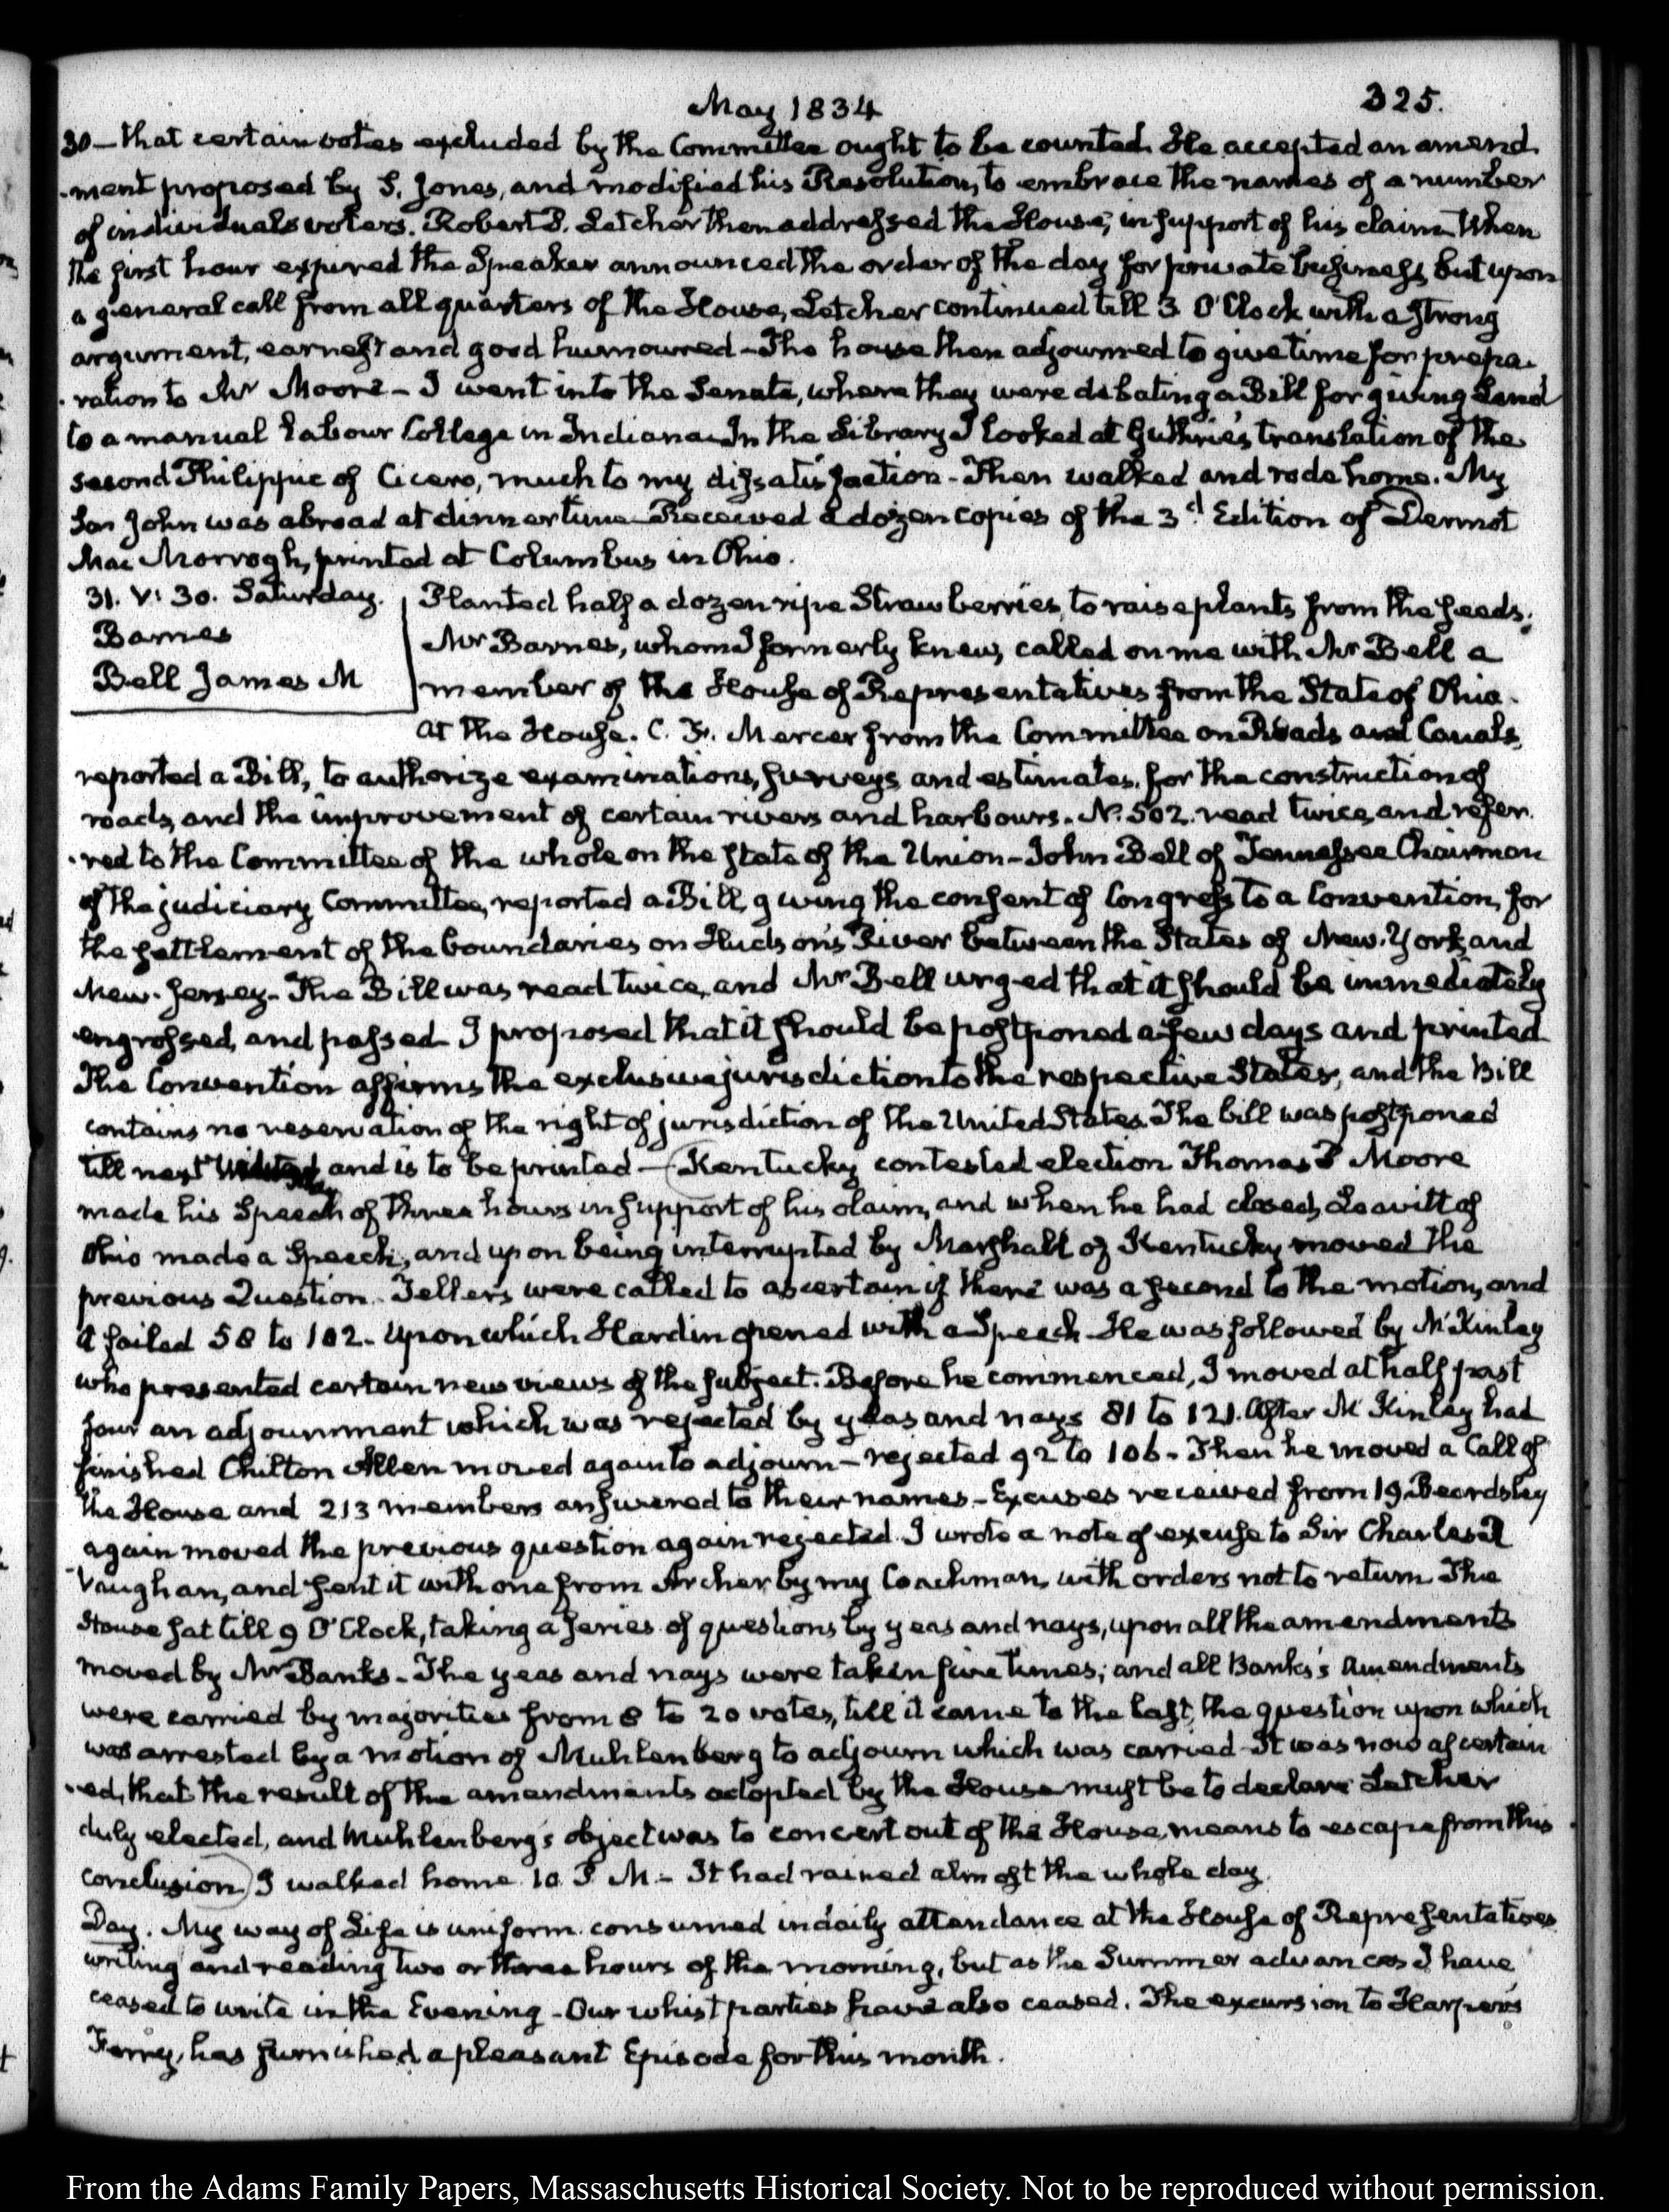 May 1834
325.
30 — that certain votes excluded by the Committee ought to be counted. He accepted an amend
-ment proposed by S. Jones, and modified his Resolution, to embrace the names of a number
of individuals voters. Robert P. Letcher then addressed the House, in support of his claim. When
the first hour expired the Speaker announced the order of the day for private business but upon
a general call from all quarters of the House, Letcher continued till 3 O'Clock with a strong
argument, earnest and good humoured - The house then adjourned to give time for prepa-
-ration to Mr Moore - I went into the Senate, where they were debating a Bill for giving Land
to a manual labour College in Indiana - In the Library I looked at Guthrie's translation of the
second Philippic of Cicero, much to my dissatisfaction - Then walked and rode home. My
Son John was abroad at dinner time - Received a dozen copies of the 3d Edition of Dermot
Mac Morrogh, printed at Columbus in Ohio.
31. V: 30. Saturday.
Barnes
Bell James M
Planted half a dozen ripe Strawberries, to raise plants from the seeds.
Mr Barnes, whom I formerly knew, called on me with Mr Bell a
member of the House of Representatives from the State of Ohio.
At the House. C. F. Mercer from the Committee on Roads and Canals,
reported a Bill, to authorize examinations, surveys, and estimates, for the construction of
roads, and the improvement of certain rivers and harbours. N. 502. read twice, and refer-
-red to the Committee of the whole on the state of the Union - John Bell of Tennessee Chairman
of the judiciary Committee, reported a Bill, giving the consent of Congress to a Convention, for
the settlement of the boundaries on Hudson's River between the States of New-York, and
New-Jersey - The Bill was read twice, and Mr Bell urged that it should be immediately
engrossed, and passed - I proposed that it should be postponed a few days and printed
The Convention affirms the exclusive jurisdiction to the respective States, and the Bill
contains no reservation of the right of jurisdiction of the United States. The bill was postponed
till next and is to be printed — (Kentucky contested election Thomas P Moore
made his Speech of three hours in support of his claim, and when he had closed, Leavitt of
Ohio made a Speech, and upon being interrupted by Marshall of Kentucky moved the
previous Question. Tellers were called to ascertain if there was a second to the motion, and
it failed 58 to 102 - upon which Hardin opened with a Speech - He was followed by McKinley
who presented certain new views of the subject. Before he commenced, I moved at half past
four an adjournment which was rejected by yeas and nays 81 to 121. After McKinley had
finished Chilton Allen moved again to adjourn — rejected 92 to 106 - Then he moved a Call of
the House and 213 members answered to their names - Excuses received from 19. Beardsley
again moved the previous question again rejected. I wrote a note of excuse to Sir Charles R
Vaughan, and sent it with one from Archer by my Coachman, with orders not to return. The
House sat till 9 O'Clock, taking a series of questions by yeas and nays, upon all the amendments
moved by Mr Banks - The yeas and nays were taken five times; and all Banks's Amendments
were carried by majorities from 8 to 20 votes, till it came to the last, the question upon which
was arrested by a motion of Muhlenberg to adjourn which was carried - It was now ascertain
-ed, that the result of the amendments adopted by the House must be to declare Letcher
duly elected, and Muhlenberg's object was to concert out of the House, means to escape from this
conclusion) I walked home 10 P. M. - It had rained almost the whole day.
Day. My way of Life is uniform. consumed in daily attendance at the House of Representatives
writing and reading two or three hours of the morning, but as the Summer advances I have
ceased to write in the Evening - Our whist parties have also ceased. The excursion to Harper's
Ferry, has furnished a pleasant Episode for this month.
From the Adams Family Papers, Massachusetts Historical Society. Not to be reproduced without permission.